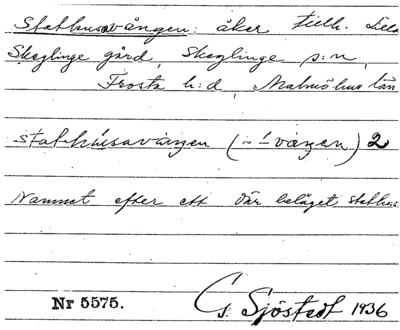 Stathusavången: åker tillh. Lilla
Skeglinge gård, Skeglinge s:n,
Frosta h:d, Malmöhus län
stat-húsavången (~ ́vången) 2
Namnet efter ett där beläget stathus.
Nr 5575.
G. Sjöstedt 1936